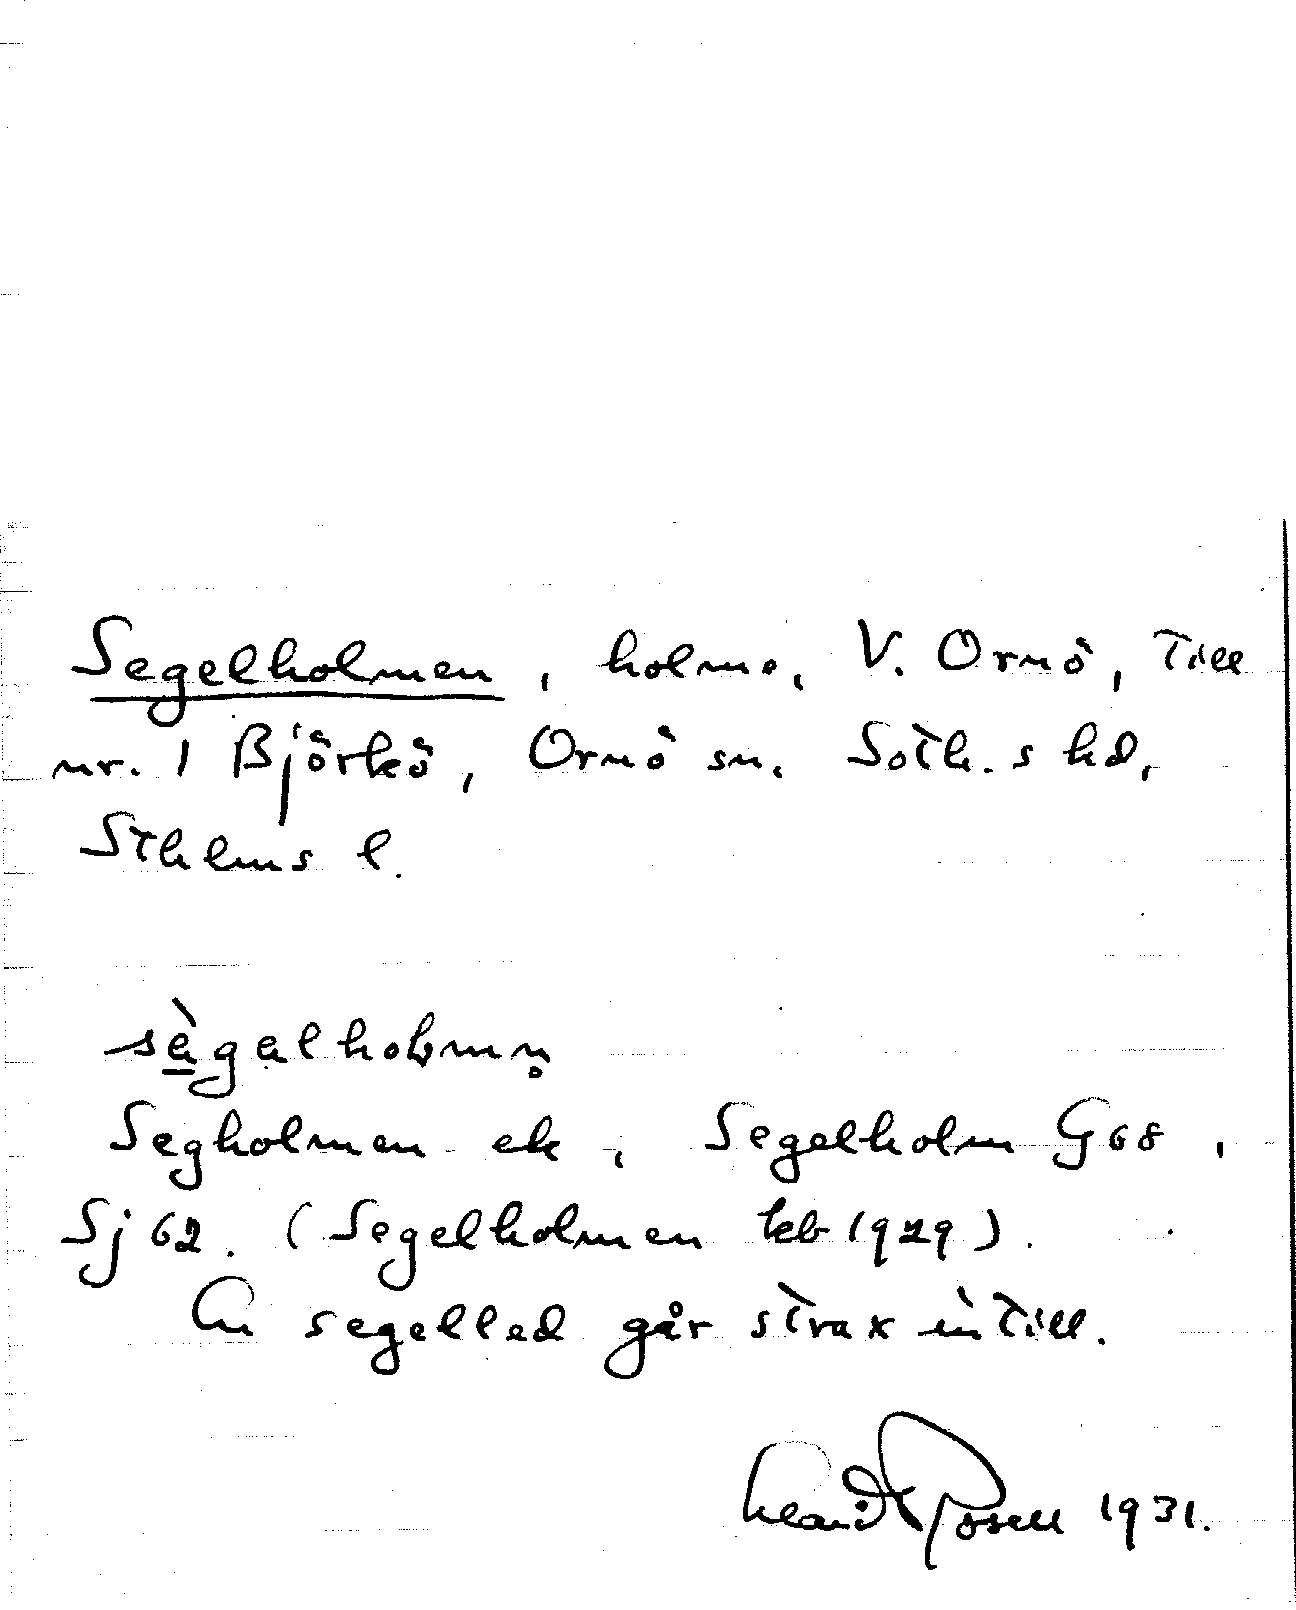 Segelholmen, holme, V. Ornö, till
nr. 1 Björkö, Ornö sn. Soth.s hd,
Sthlms l.
sègəlholmn̥
Segholmen ek, Segelholm G68,
Sj 62. (Segelholmen kb 1929).
En segelled går strax intill.
1931.